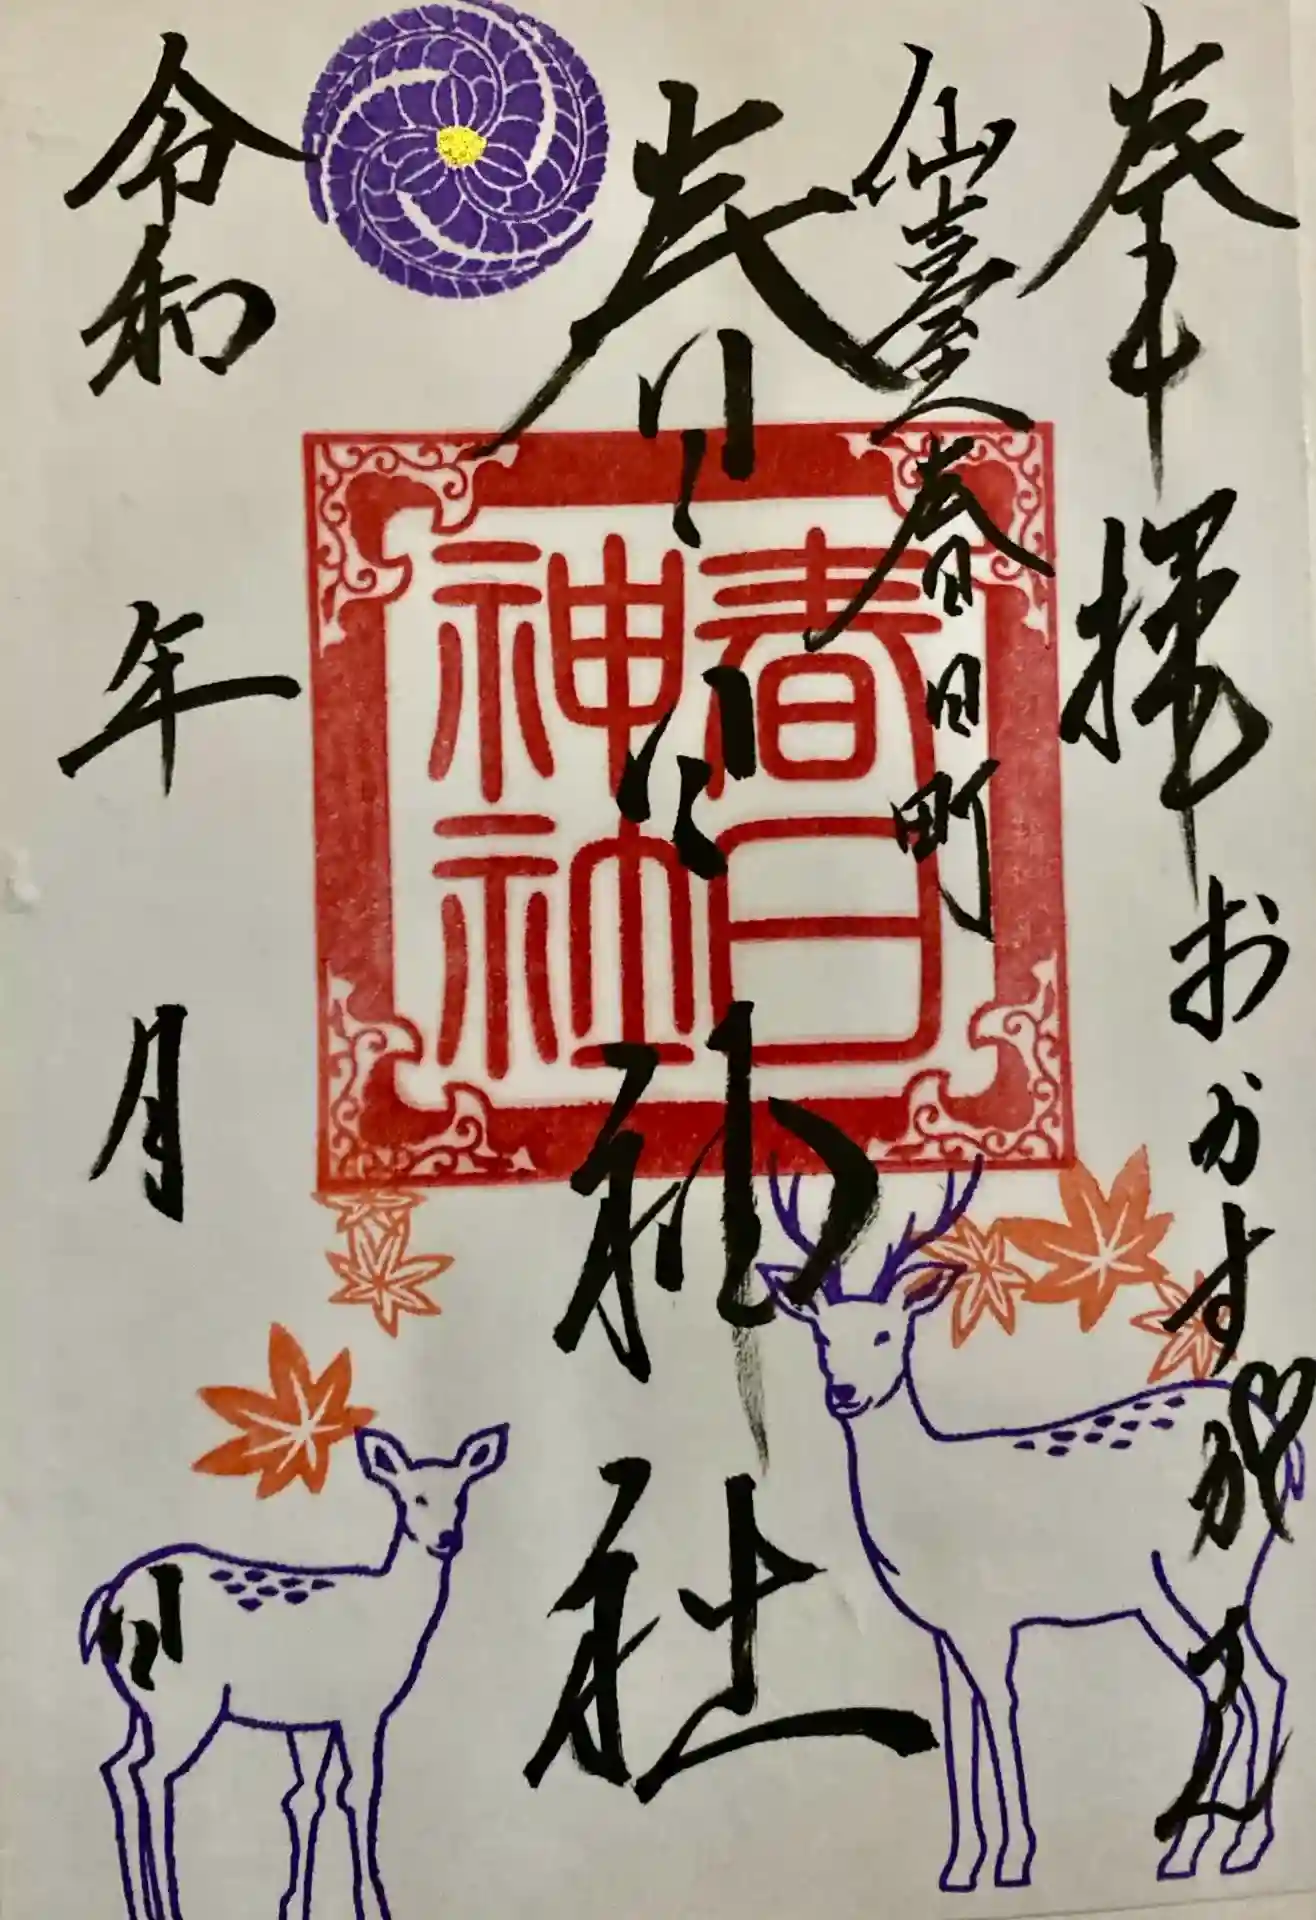 奉拝 おかすががえし
仙臺 春日町
春日神社
春日
神社
令和 年 月 日